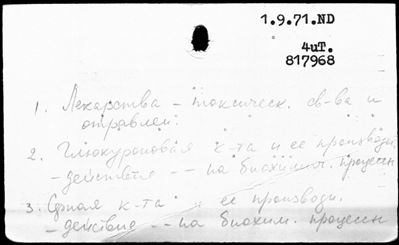 1.9.71.ND
4uT.
817968
1. Лекарства – токсическ. св-ва и
отравлен.
2. Глюкуроновая к-та и ее производн.
– действие – на биохимич. процессы
3. к-та и ее производн.
– действие – на биохим. процессы